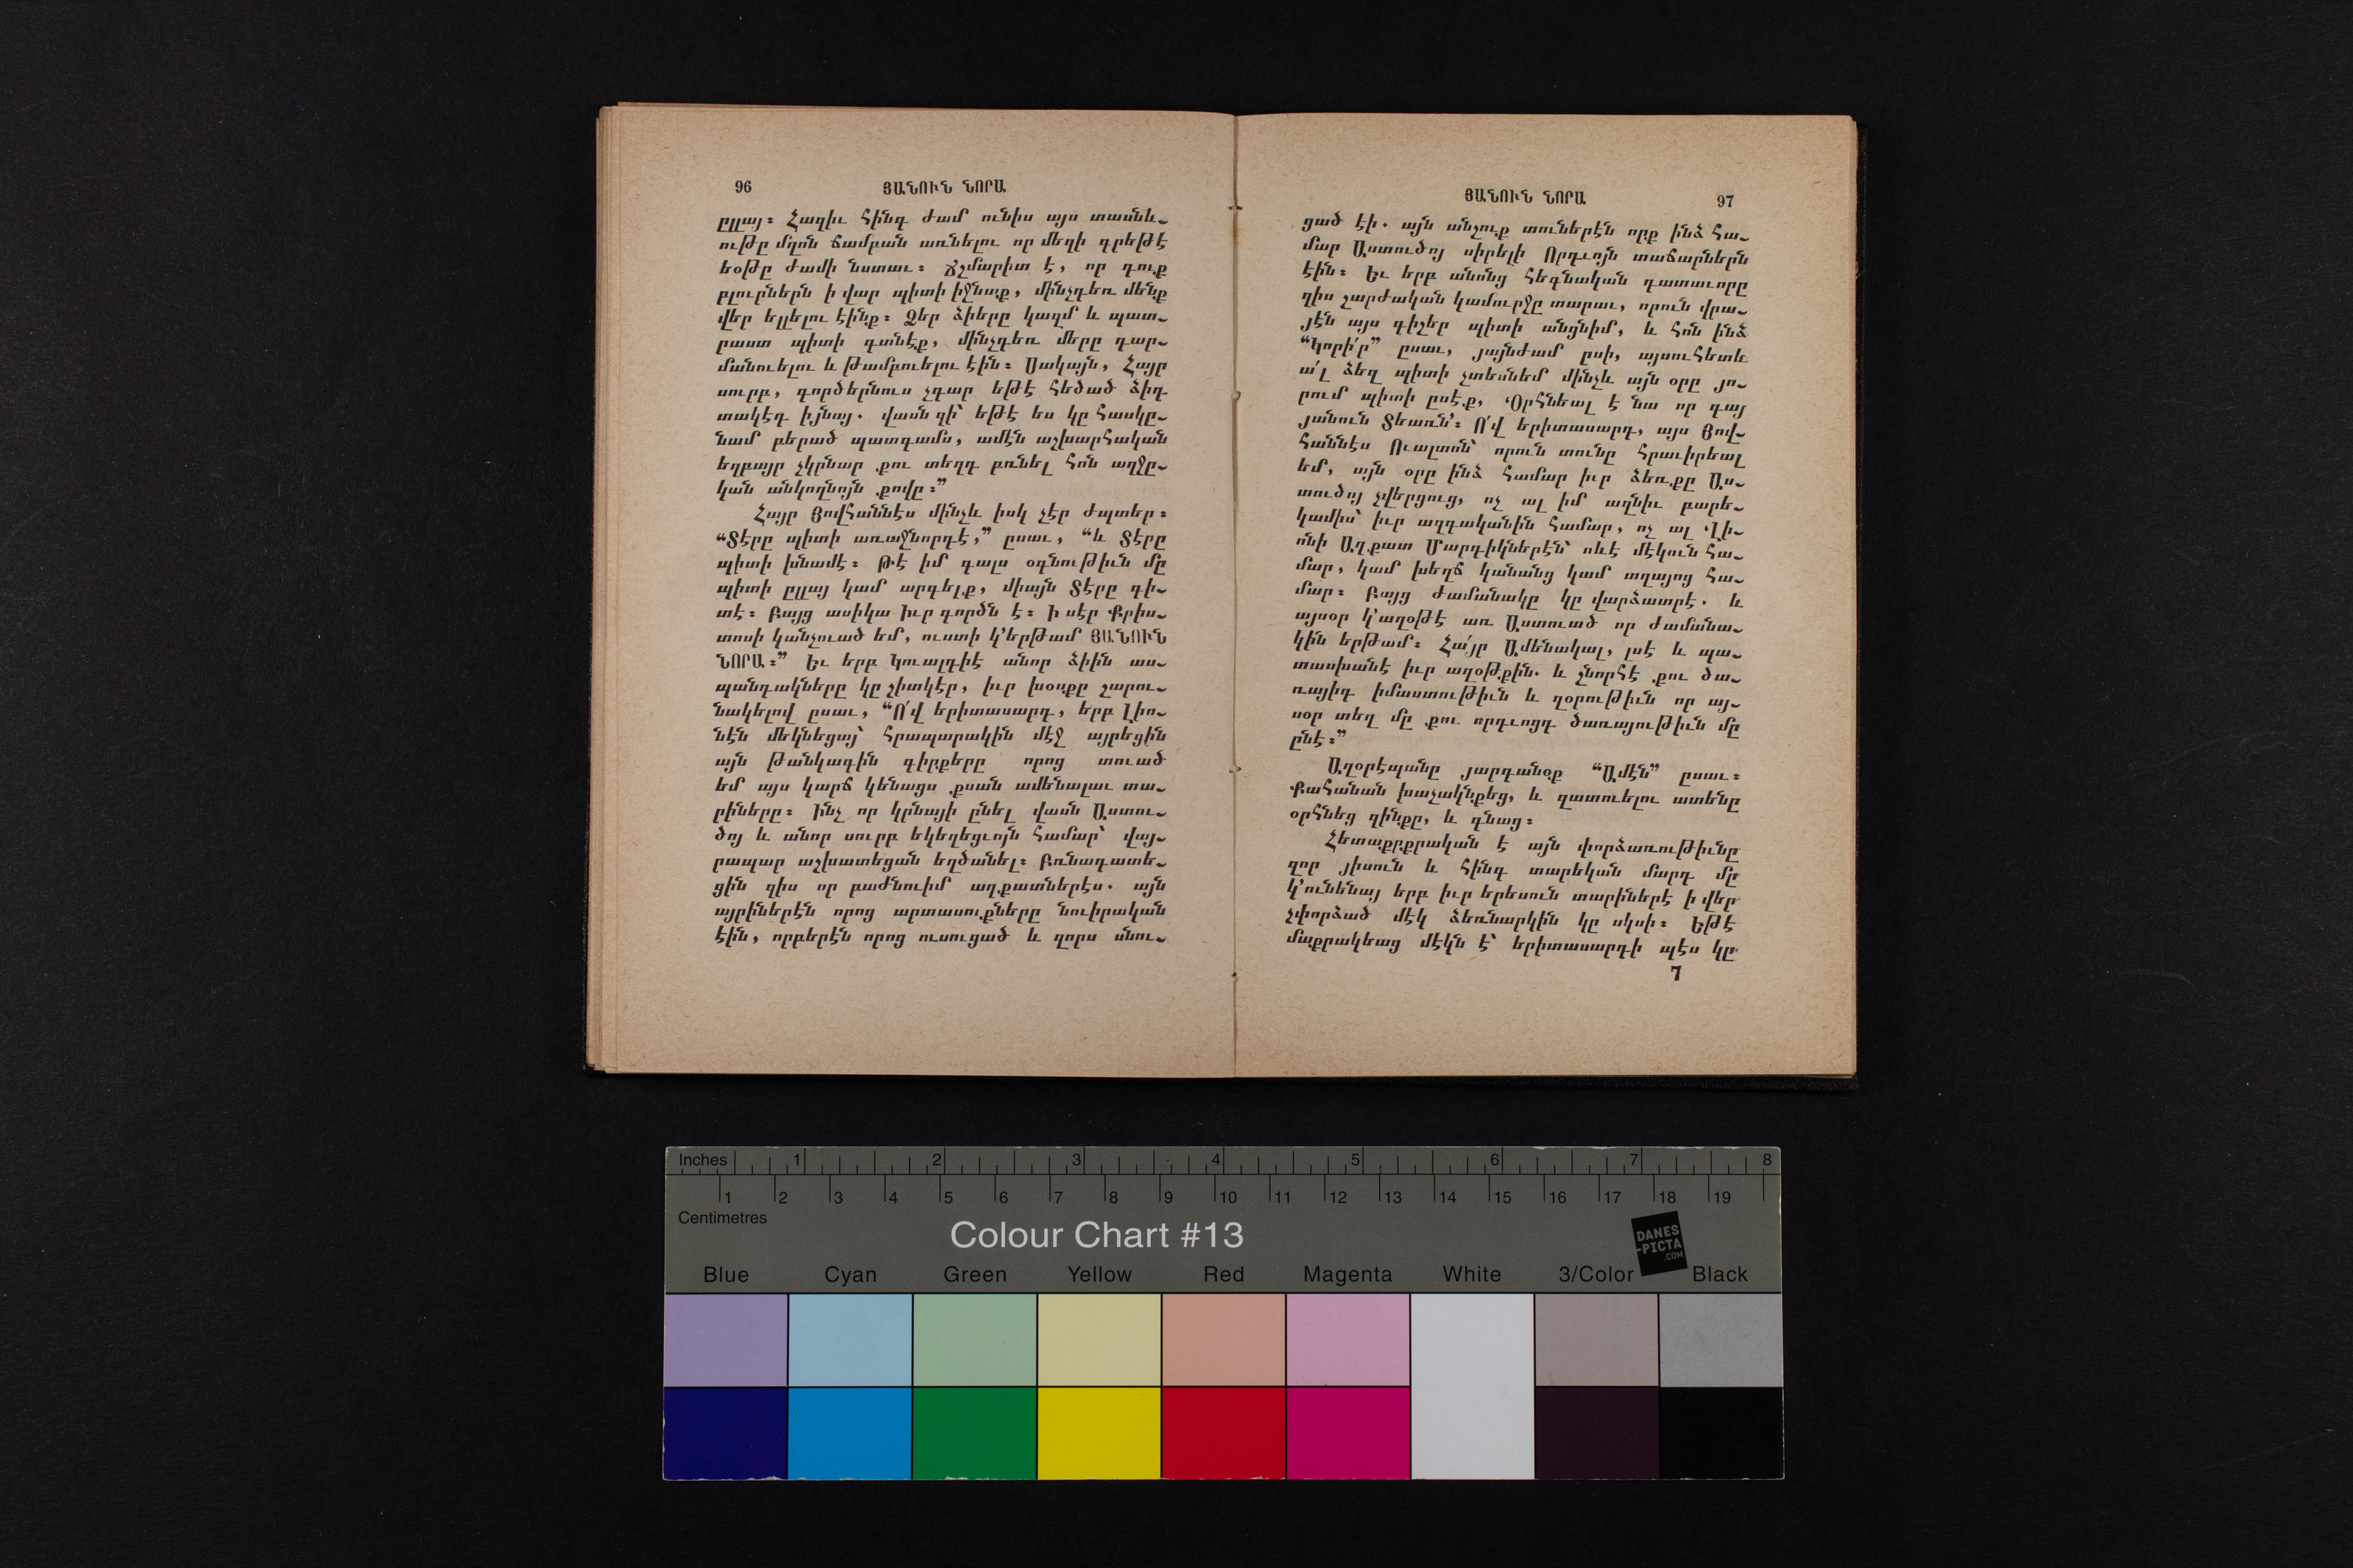 96 ՅԱՆՈՒՆ ՆՈՐԱ
ըլլայ։ Հազիւ հինգ ժամ ունիս այս տասնև֊
ութը մղոն ճամբան առնելու որ մեզի գրեթէ
եօթը ժամի նստաւ։ Ճշմարիտ է, որ դուք
բլուրներն ի վար պիտի իջնաք, մինչդեռ մենք
վեր ելլելու էինք։ Ձեր ձիերը կազմ և պատ֊
րաստ պիտի գտնէք, մինչդեռ մերը դար֊
մանուելու և թամբուելու էին։ Սակայն, Հայր
սուրբ, գործերնուս չգար եթէ հեծած ձիդ
տակէդ իյնայ. վասն զի՝ եթէ ես կը հասկը֊
նամ բերած պատգամս, ամէն աշխարհական
եղբայր չկրնար քու տեղդ բռնել հոն աղջը֊
կան անկողնոյն քովը։”
Հայր Յովհաննէս մինչև իսկ չէր ժպտեր։
“Տէրը պիտի առաջնորդէ,” ըսաւ, “և Տէրը
պիտի խնամէ։ Թէ իմ գալս օգնութիւն մը
պիտի ըլլայ կամ արգելք, միայն Տէրը գի֊
տէ։ Բայց ասիկա Իւր գործն է։ Ի սէր Քրիս֊
տոսի կանչուած եմ, ուստի կ’երթամ ՅԱՆՈՒՆ
ՆՈՐԱ։” Եւ երբ Կուալդիէ անոր ձիին աս֊
պանդակները կը շիտկէր, իւր խօսքը շարու֊
նակելով ըսաւ, “Ո՜վ երիտասարդ, երբ Լիո֊
նէն մեկնեցայ՝ հրապարակին մէջ այրեցին
այն թանկագին գիրքերը որոց տուած
եմ այս կարճ կենացս քսան ամենալաւ տա֊
րիները։ Ինչ որ կրնայի ընել վասն Աստու֊
ծոյ և անոր սուրբ եկեղեցւոյն համար՝ վայ֊
րապար աշխատեցան եղծանել։ Բռնադատե֊
ցին զիս որ բաժնուիմ աղքատներէս. այն
այրիներէն որոց արտասուքները նուիրական
էին, որբերէն որոց ուսուցած և զորս սնու֊
ՅԱՆՈՒՆ ՆՈՐԱ 97
ցած էի. այն անշուք տուներէն որք ինձ հա֊
մար Աստուծոյ սիրելի Որդւոյն տաճարներն
էին։ Եւ երբ անոնց հեգնական դատաւորը
զիս շարժական կամուրջը տարաւ, որուն վրա֊
յէն այս գիշեր պիտի անցնիմ, և հոն ինձ
“Կորի՛ր” ըսաւ, յայնժամ ըսի, այսուհետև
ա՛լ ձեզ պիտի չտեսնեմ մինչև այն օրը յո֊
րում պիտի ըսէք, ‘Օրհնեալ է նա որ գայ
յանուն Տեառն’։ Ո՜վ երիտասարդ, այս Յով֊
հաննէս Ուալտոն՝ որուն տունը հրաւիրեալ
եմ, այն օրը ինձ համար իւր ձեռքը Աս֊
տուծոյ չվերցուց, ոչ ալ իմ ազնիւ բարե֊
կամիս՝ իւր ազգականին համար, ոչ ալ ‘Լի֊
ոնի Աղքատ Մարդիկներէն՝ ոևէ մէկուն հա֊
մար, կամ խեղճ կանանց կամ տղայոց հա֊
մար։ Բայց ժամանակը կը վարձատրէ. և
այսօր կ’աղօթէ առ Աստուած որ ժամանա֊
կին երթամ։ Հա՛յր Ամենակալ, լսէ և պա֊
տասխանէ իւր աղօթքին. և շնորհէ քու ծա֊
ռայիդ իմաստութիւն և զօրութիւն որ այ֊
սօր տեղ մը քու որդւոցդ ծառայութիւն մը
ընէ։”
Աղօրէպանը յարգանօք “Ամէն” ըսաւ։
Քահանան խաչակնքեց, և զատուելու ատենը
օրհնեց զինքը, և գնաց։
Հետաքրքրական է այն փորձառութիւնը
զոր յիսուն և հինգ տարեկան մարդ մը
կ’ունենայ երբ իւր երեսուն տարիներէ ի վեր
չփորձած մէկ ձեռնարկին կը սկսի։ Եթէ
մաքրակեաց մէկն է՝ երիտասարդի պէս կը
7
Inches 1 2 3 4 5 6 7 8
1 2 3 4 5 6 7 8 9 10 11 12 13 14 15 16 17 18 19
Centimetres
Colour Chart #13
DANES
-PICTA
.COM
Blue Cyan Green Yellow Red Magenta White 3/Color Black